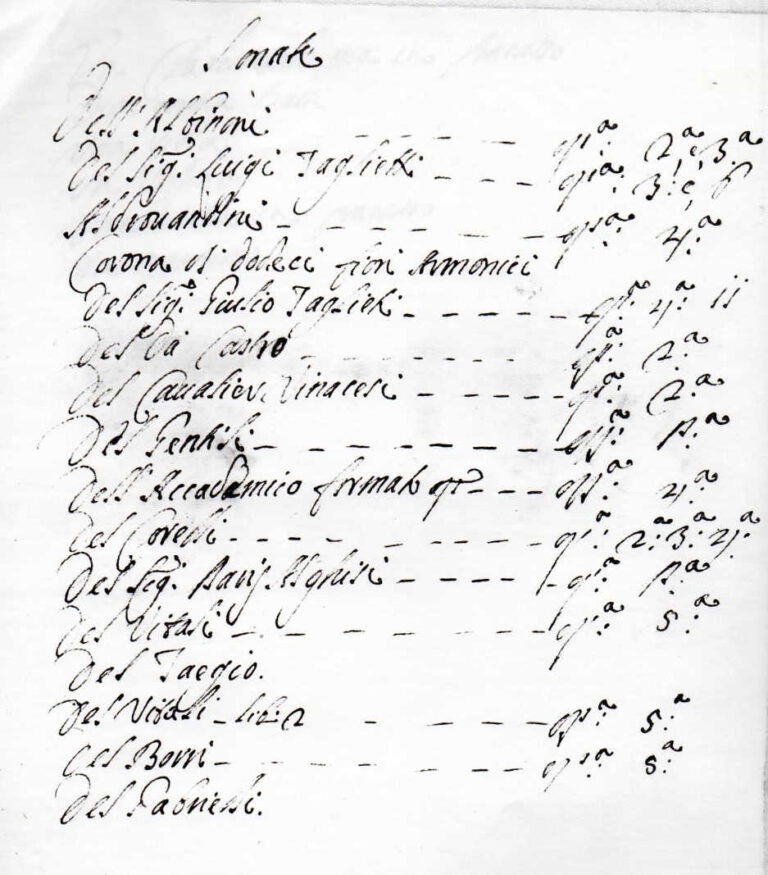 Sonate
Dell'Albinoni - - - - op.ª 2.ª, e 3.ª
Del Sig.r Luigi Taglietti - - - - op.ª 3.ª e 6
Aldrovandini - - - - - - op.ª 4.ª
Corona di dodeci fiori Armonici
Del Sig.r Giulio Taglieti - - - - - op.ª 4.ª 11
Del Da Castro - - - - - - op.ª 2.ª
Del Cavalier Vinacesi - - - - - op.ª 2.ª
Del Gentili - - - - - - op.ª p.ª
Dell'Accademico formato - - - op.ª 4.ª
Del Corelli - - - - - - op.ª 2.ª 3.ª 4.ª
Del Sig.r Paris Alghisi - - - - op.ª p.ª
Del Vitali - - - - - op.ª 5.ª
Del Taegio.
Del Vitali - lib: 2 - - - - op.ª 5.ª
Del Borri - - - - - - - op.ª 5.ª
Del Gabrielli.